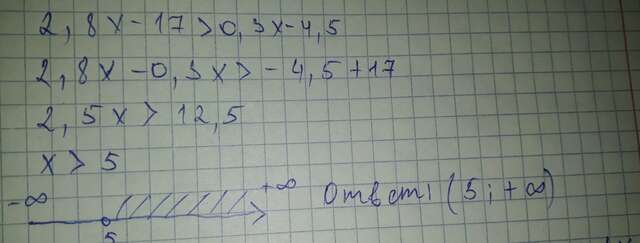 2,8x-17>0,3x-4,5
2,8x-0,3x>-4,5+17
2,5x>12,5
x>5
-∞ +∞ Ответ: (5;+∞)
5